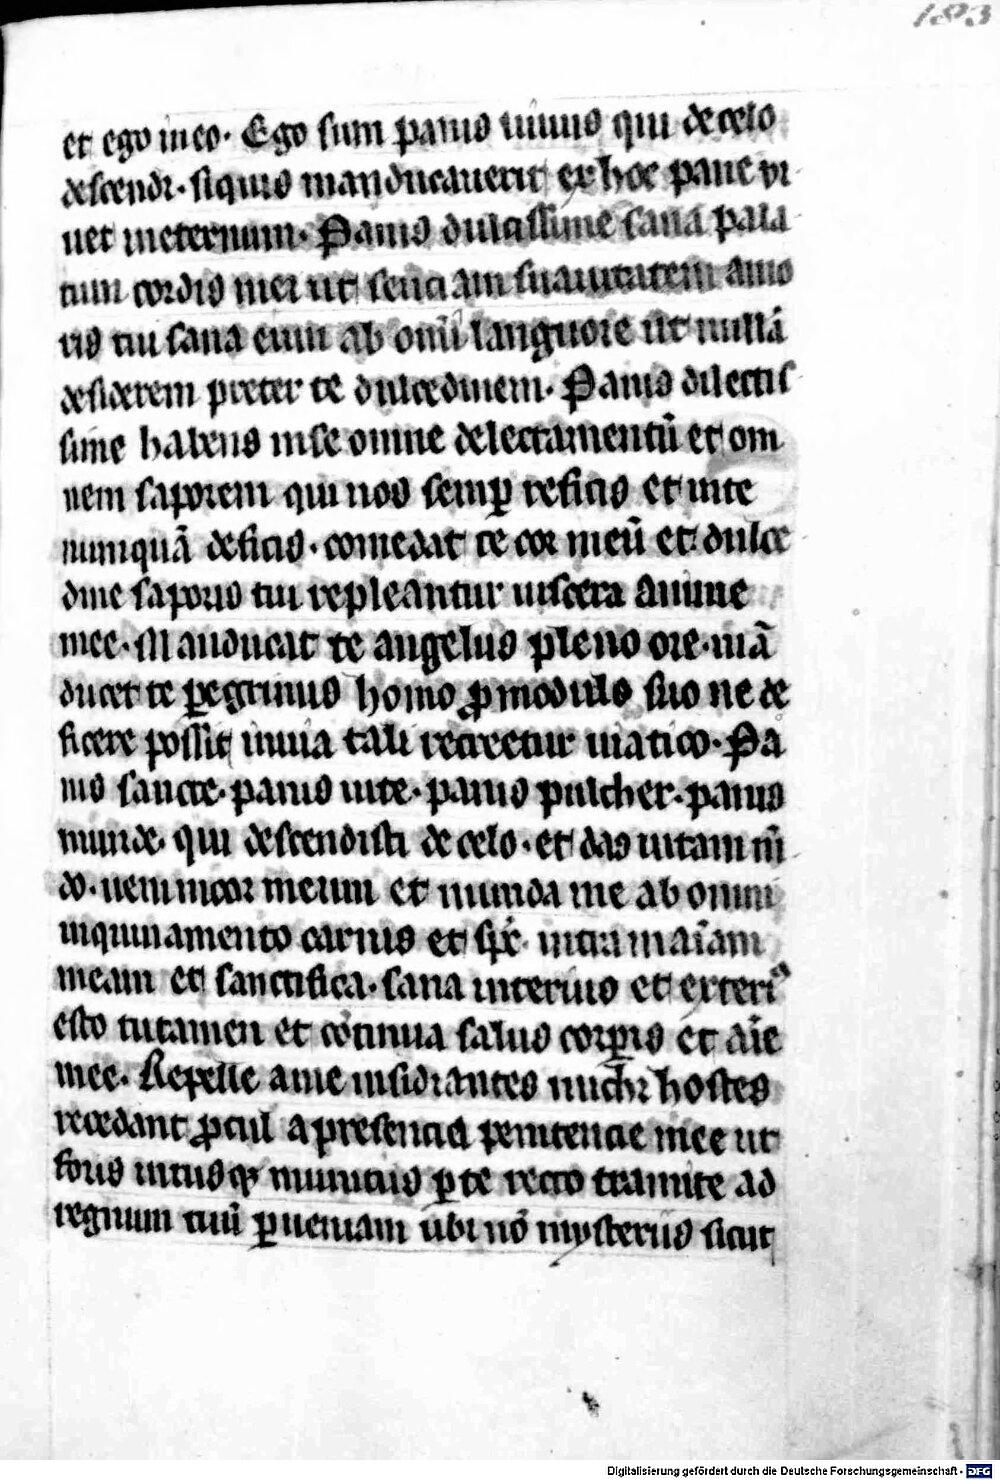 183
et ego in eo. Ego sum panis uiuus qui de celo
descendi. siquis manducauerit ex hoc pane vi
uet ineternum. Panis dulcissime sana pala
tum cordis mei ut senciam suauitatem amo
ris tui sana eum ab omĩ languore ut nullã
desiderem preter te dulcedinem. Panis dilectis
sime habens inse omne delectamentũ et om
nem saporem qui nos semꝑ reficis et inte
numquã deficis. comedat te cor meũ et dulce
dine saporis tui repleantur uiscera anime
mee. Manducat te angelus pleno ore. mã
ducet te ꝑegrinus homo ꝓ modulo suo ne de
ficere possit in uia tali recreetur uiatico. Pa
nis sancte. panis uite. panis pulcher. panis
munde. qui descendisti de celo. et das uitam mũ
do. ueni in cor meum et munda me ab omni
inquinamento carnis et sp̃c. intra in aĩam
meam et sanctifica. sana interius et exteriꝰ
esto tutamen et cõtinua salus corꝑis et aĩe
mee. Repelle a me insidiantes michi hostes
recedant ꝓcul a presencia potencie mee ut
foris intusqꝫ munitus ꝑ te recto tramite ad
regnum tuũ ꝑueniam ubi nõ mysteriis sicut
Digitalisierung gefördert durch die Deutsche Forschungsgemeinschaft - DFG